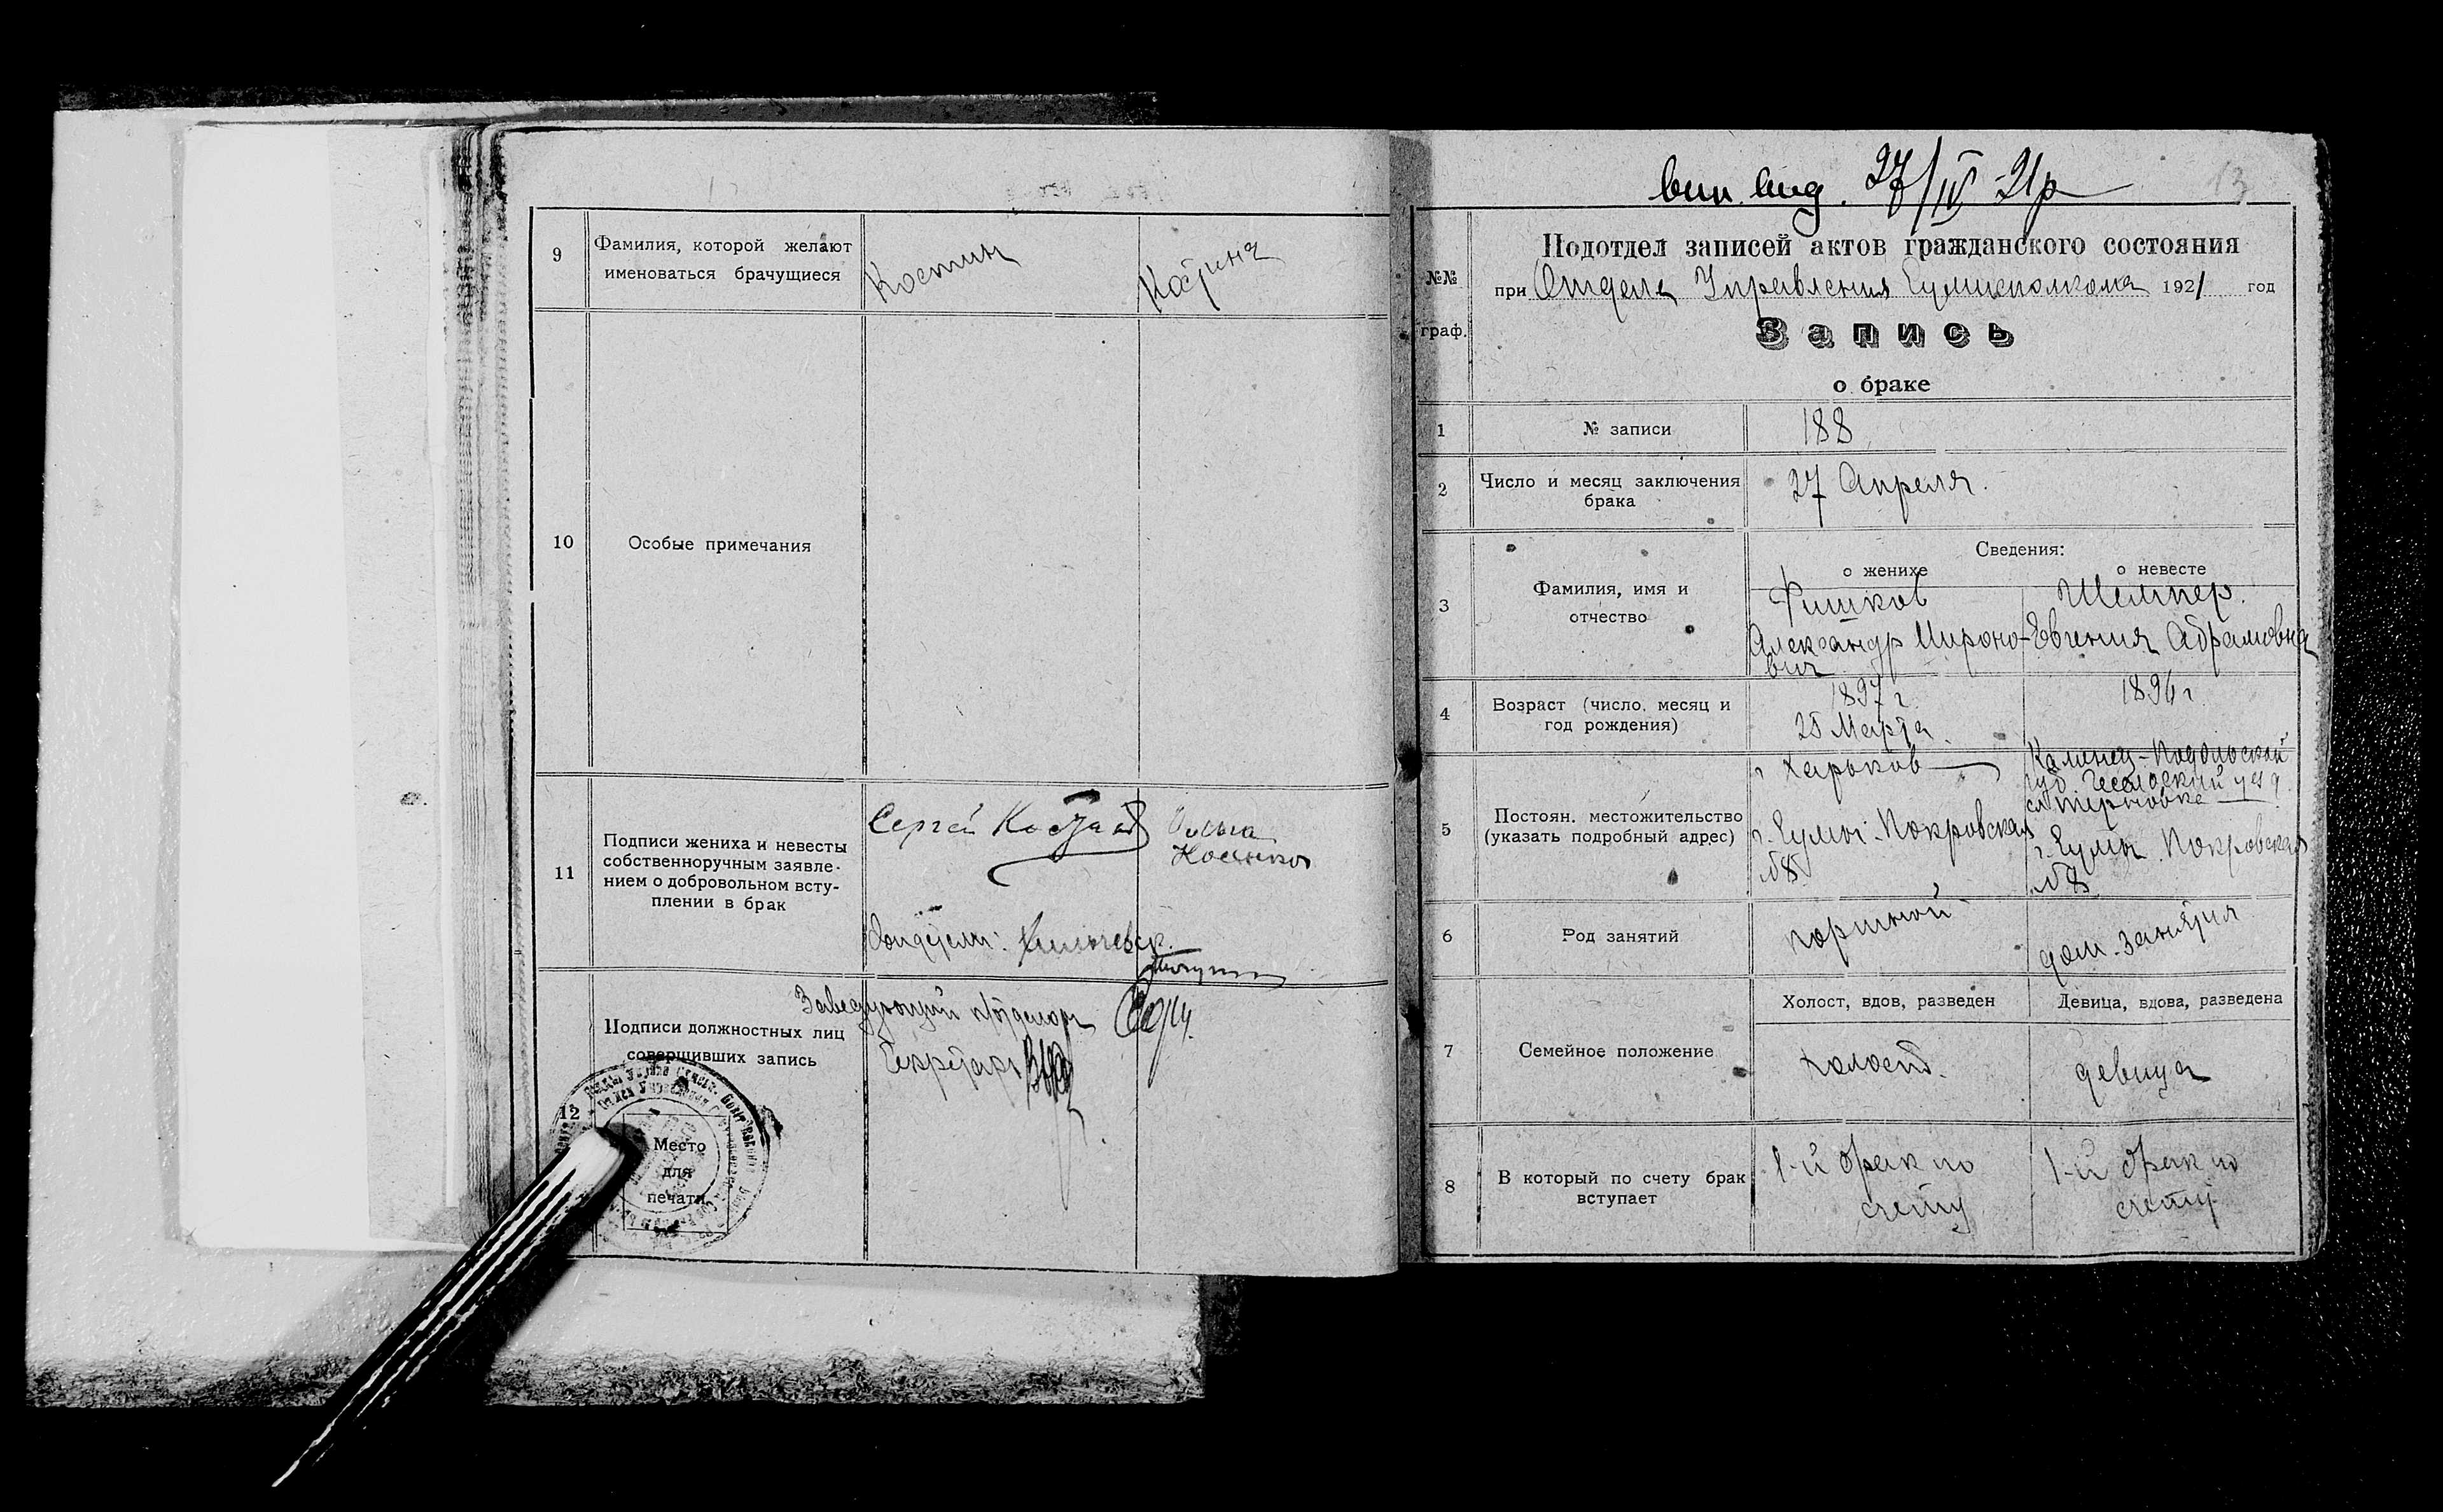 9
Фамилия, которой желают
именоваться брачущиеся
Костин
10
Особые примечания
11
Подписи жениха и невесты
собственноручным заявле-
нием о добровольном всту-
плении в брак
Сергей
Заведующий п/отделом
Подписи должностных лиц
совершивших запись
Секретарь
12
Место
для
печати
вип. вид. 27/IV 21р
13
№№
граф.
Подотдел записей актов гражданского состояния
при Отделе Управления Сумисполкома 1921 год
Запись
о браке
1
№ записи
188
2
Число и месяц заключения
брака
27 Апреля.
Сведения:
о женихе
о невесте
3
Фамилия, имя и
отчество
Фишков
Александр Мироно-
вич
Шемпер.
Евгения Абрамовна
4
Возраст (число, месяц и
год рождения)
1897 г.
25 Марта.
1896 г.
5
Постоян. местожительство
(указать подробный адрес)
г Харьков
г. Сумы Покровская
№8
Каменец-Подольской
губ.
г. Сумы Покровская
№8
6
Род занятий
портной
дом. занятия
7
Семейное положение
Холост, вдов, разведен
Девица, вдова, разведена
холост.
девица
8
В который по счету брак
вступает
1-й брак по
счету
1-й брак по
счету